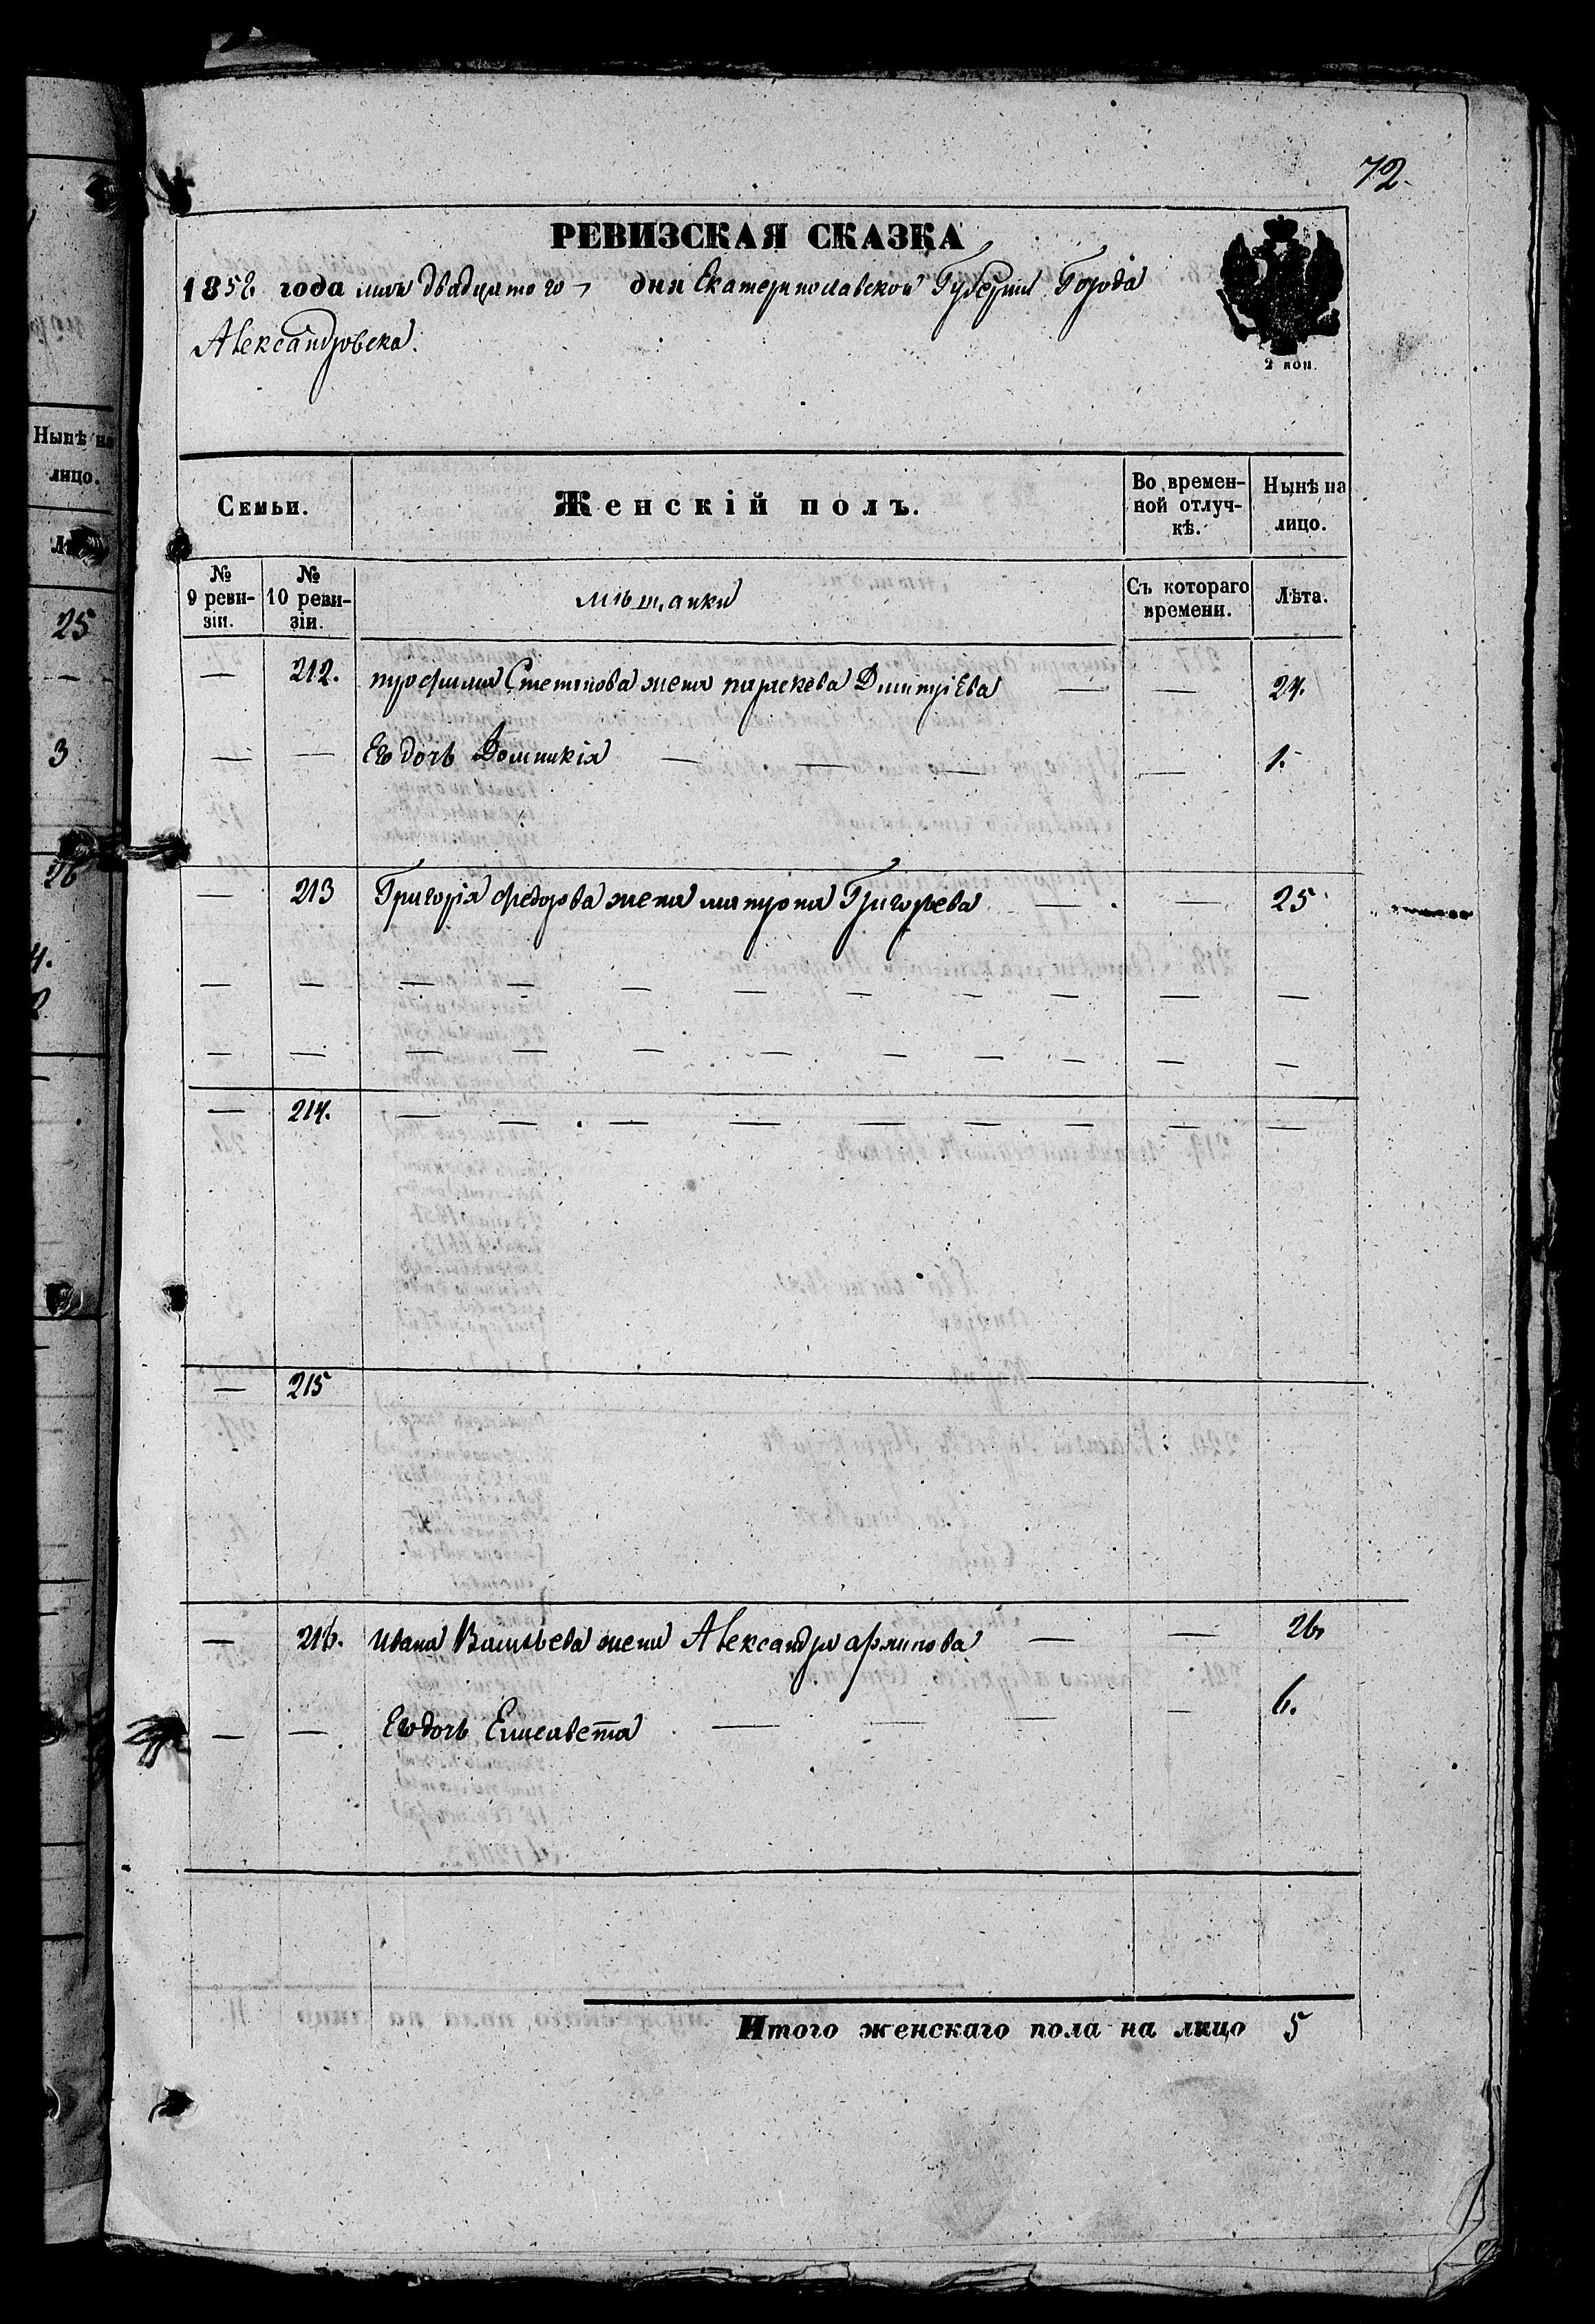 72.
РЕВИЗСКАЯ СКАЗКА
1858 года мая двадцатого дня Екатеринославской Губерніи Города
Александровска.
2 коп.
Нынѣ на
лицо.
25
3
26
Семьи.
Женскій полъ.
Во времен-
ной отлуч-
кѣ.
Нынѣ на
лицо.
№
9 реви-
зіи.
№
10 реви-
зіи.
мѣщанки
Съ котораго
времени.
Лѣта.
— 212. профима Степанова жена параскева Дмитріева — — 24.
— — Его дочь Домникія — — — — 1.
— 213 Григорія федорова жена матрона Григорьева — — 25
— — — — — — — — — — —
— — — — — — — — — — —
— 214. — — — — — — — — —
— 215
— 216. ивана Васильева жена Александра архипова — — 26
— — Его дочь Елисавета — — — — 6.
Итого женскаго пола на лицо 5